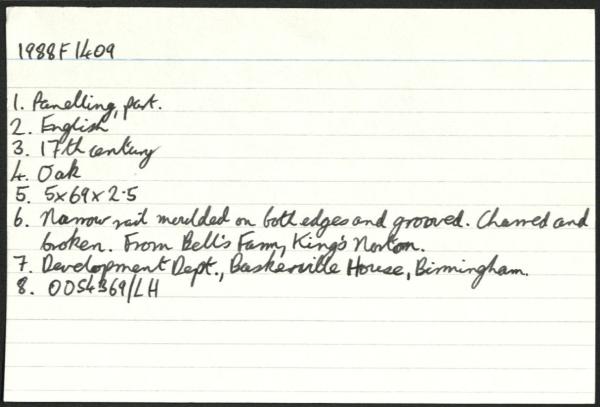 1988F1409
1. Panelling, part.
2. English
3. 17th century
4. Oak
5. 5x69x2.5
6. Narrow rail moulded on both edges and grooved. Charred and
broken. From Bell's Farm, King's Norton.
7. Development Dept., Baskerville House, Birmingham.
8. OOS4369/LH